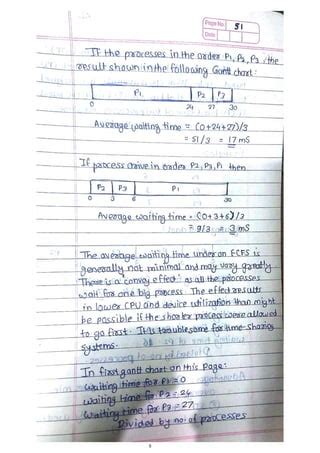 Page No. 51
Date
If the processes in the order P1, P2, P3, the
result shown in the following Gantt chart:
P1 P2 P3
0 24 27 30
Average waiting time = (0+24+27)/3
= 51/3 = 17 ms
If process arrive in order P2, P3, P1 then
P2 P3 P1
0 3 6 30
Average waiting time = (0+3+6)/3
= 9/3 = 3 ms
The average waiting time under an FCFS is
generally not minimal and may vary greatly
There is a "convey effect" as all the processes
wait for one big process. The effect results
in lower CPU and device utilization than might
be possible if the shorter process were allowed
to go first. It is troublesome for time-sharing
systems.
In first gantt chart on this Page:
Waiting time for P1 = 0
Waiting time for P2 = 24
Waiting time for P3 = 27
Divided by no. of processes